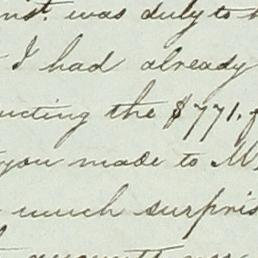 inst. was duly to
I had already
ucting the $771. f
you made to Mr
much surpris